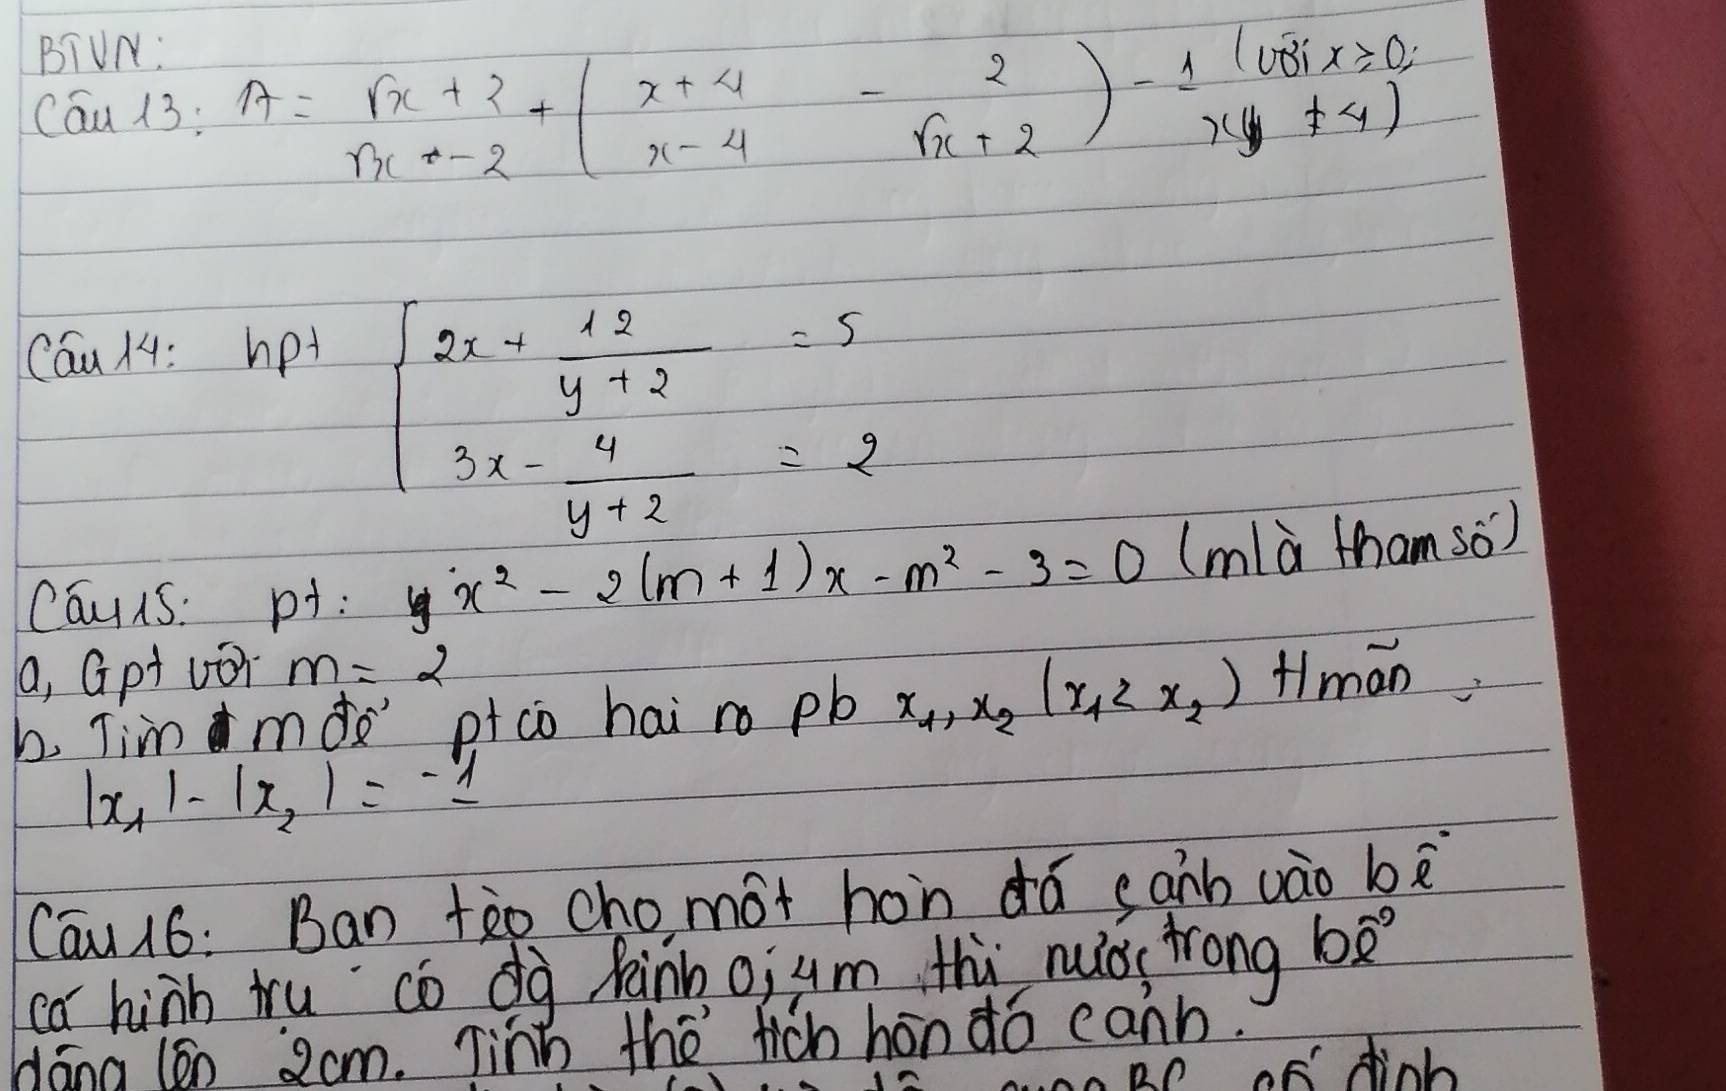 BTVN:
Câu 13: A = √x + 2 / √x - 2 + ( x + 4 / x - 4 - 2 / √x + 2 ) - 1 (với x ≥ 0; x ≠ 4)
Câu 14: hpt { 2x + 12 / y + 2 = 5
3x - 4 / y + 2 = 2
Câu 15: pt: x² - 2(m + 1)x - m² - 3 = 0 (m là tham số)
a, Gpt với m = 2
b. Tìm m để pt có hai no pb x₁, x₂ (x₁ < x₂) t/mãn
|x₁| - |x₂| = -1
Câu 16: Bạn tèo cho một hòn đá cảnh vào bể
cá hình trụ có đg kính 0,4m thì nước trong bể
dâng lên 2cm. Tính thể tích hòn đá cảnh.
BC cố định